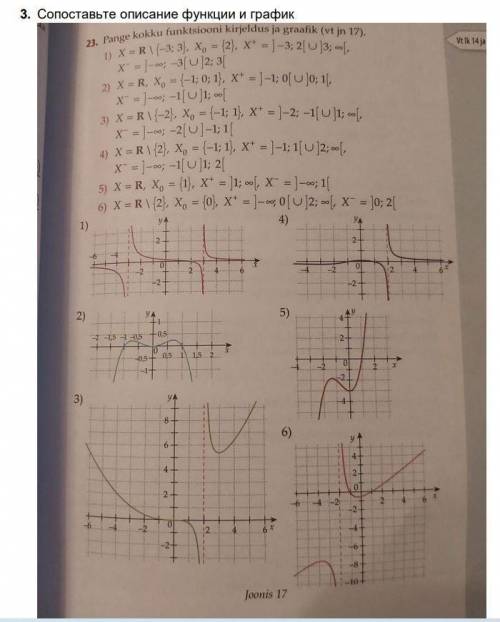 3. Сопоставьте описание функции и график
23. Pange kokku funktsiooni kirjeldus ja graafik (vt jn 17).
Vt lk 14 ja
1) X = R \ {−3; 3}, X₀ = {2}, X⁺ = ]−3; 2[ ∪ ]3; ∞[,
X⁻ = ]−∞; −3[ ∪ ]2; 3[
2) X = R, X₀ = {−1; 0; 1}, X⁺ = ]−1; 0[ ∪ ]0; 1[,
X⁻ = ]−∞; −1[ ∪ ]1; ∞[
3) X = R \ {−2}, X₀ = {−1; 1}, X⁺ = ]−2; −1[ ∪ ]1; ∞[,
X⁻ = ]−∞; −2[ ∪ ]−1; 1[
4) X = R \ {2}, X₀ = {−1; 1}, X⁺ = ]−1; 1[ ∪ ]2; ∞[,
X⁻ = ]−∞; −1[ ∪ ]1; 2[
5) X = R, X₀ = {1}, X⁺ = ]1; ∞[, X⁻ = ]−∞; 1[
6) X = R \ {2}, X₀ = {0}, X⁺ = ]−∞; 0[ ∪ ]2; ∞[, X⁻ = ]0; 2[
1)
y
2
-6 -4 -2 0 2 4 6 x
-2
4)
y
2
-4 -2 0 2 4 6 x
-2
2)
y
1
0,5
-2 -1,5 -1 -0,5 0 0,5 1 1,5 2 x
-0,5
-1
5)
y
4
2
-4 -2 0 2 x
-2
-4
3)
y
8
6
4
2
-6 -4 -2 0 2 4 6 x
-2
6)
y
4
2
-6 -4 -2 0 2 4 6 x
-2
-4
-6
-8
-10
Joonis 17